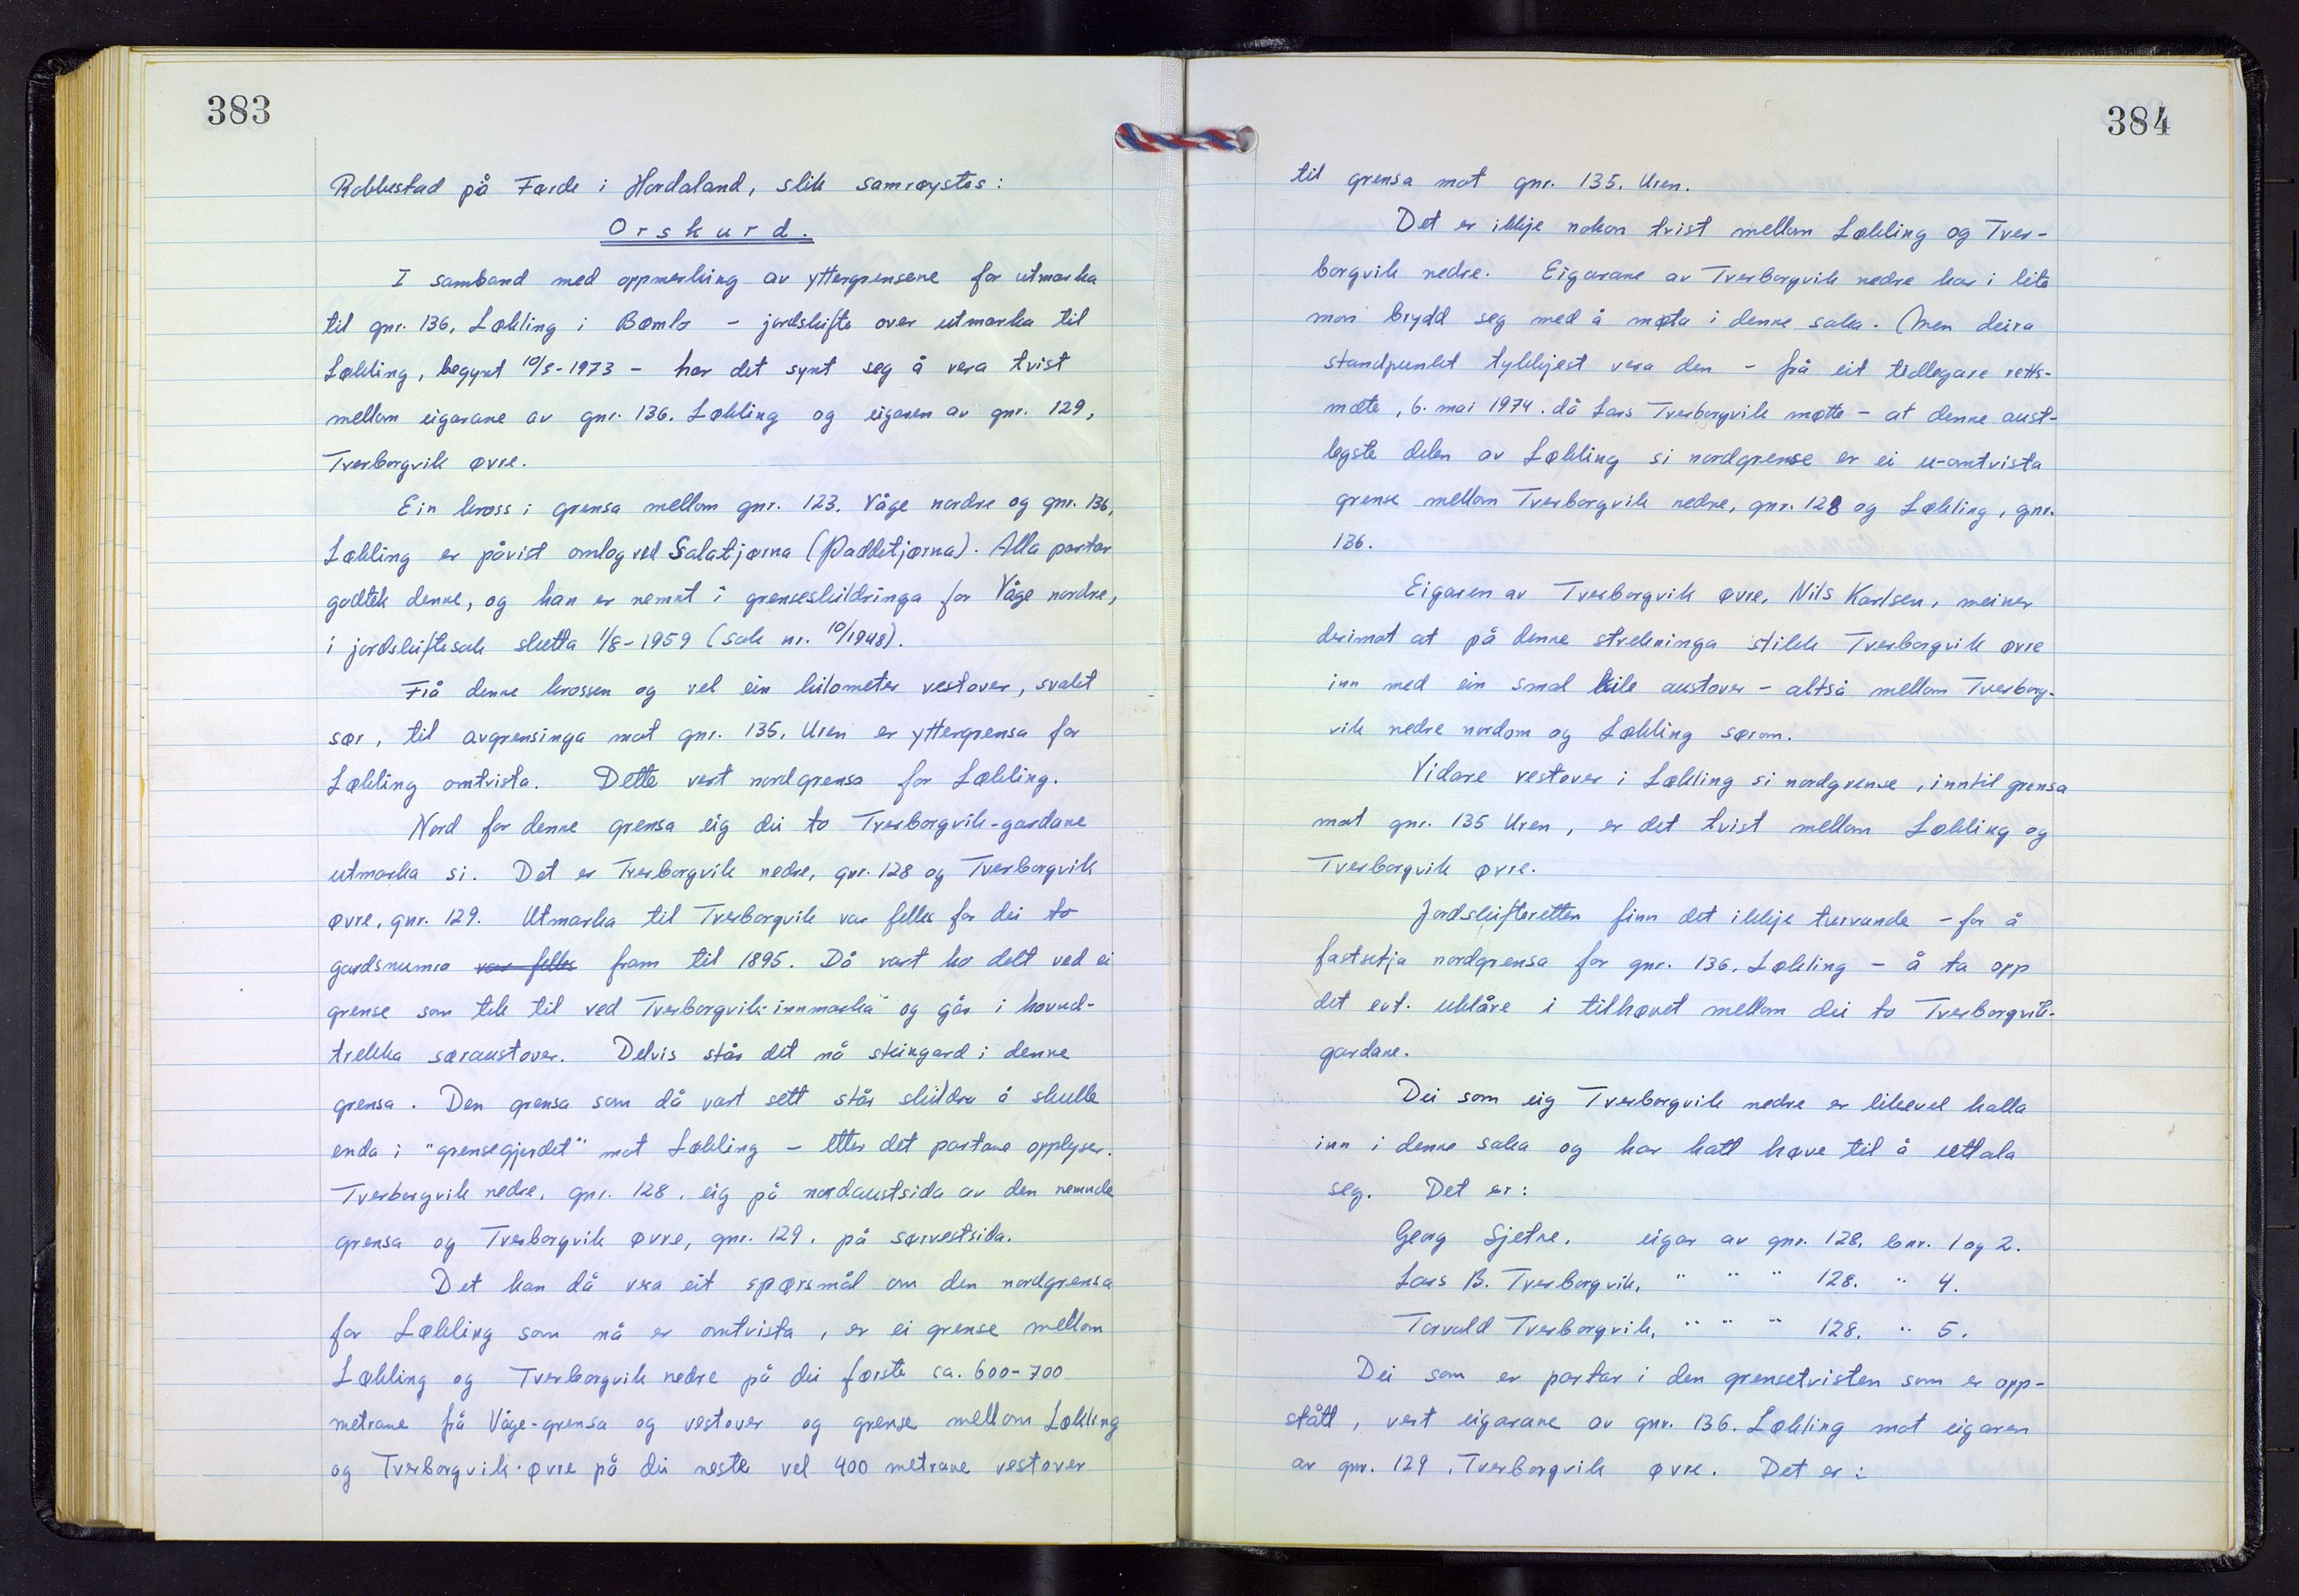 383
Robbestad på Førde i Hordaland, slik samrøystes:
Orskurd.
I samband med oppmerking av yttergrensene for utmarka
til gnr. 136, Løkling i Bømlo - jordskifte over utmarka til
Løkling, begynt 10/5-1973 - har det synt seg å vera tvist
mellom eigarane av gnr. 136. Løkling og eigaren av gnr. 129,
Tverborgvik øvre.
Ein kross i grensa mellom gnr. 123. Våge nordre og gnr. 136,
Løkling er påvist omlag ved Salatjørna (Paddetjørna). Alla partar
godtek denne, og han er nemnt i grenseskildringa for Våge nordre,
i jordskiftesak slutta 1/8-1959 (sak nr. 10/1948).
Frå denne krossen og vel ein kilometer vestover, svakt
sør, til avgrensinga mot gnr. 135, Uren er yttergrensa for
Løkling omtvista. Dette vert nordgrensa for Løkling.
Nord for denne grensa eig dei to Tverborgvik-gardane
utmarka si. Det er Tverborgvik nedre, gnr. 128 og Tverborgvik
øvre, gnr. 129. Utmarka til Tverborgvik var felles for dei to
gardsnumra var felles fram til 1895. Då vart ho delt ved ei
grense som tek til ved Tverborgvik-innmarka og går i hovud-
trekka søraustover. Delvis står det nå steingard i denne
grensa. Den grensa som då vart sett står skildra å skulle
enda i "grensegjerdet" mot Løkling - etter det partane opplyser.
Tverborgvik nedre, gnr. 128, eig på nordaustsida av den nemnde
grensa og Tverborgvik øvre, gnr. 129, på sørvestsida.
Det kan då vera eit spørsmål om den nordgrensa
for Løkling som nå er omtvista, er ei grense mellom
Løkling og Tverborgvik nedre på dei første ca. 600-700
metrane frå Våge-grensa og vestover og grense mellom Løkling
og Tverborgvik øvre på dei neste vel 400 metrane vestover
384
til grensa mot gnr. 135. Uren.
Det er ikkje nokon tvist mellom Løkling og Tver-
borgvik nedre. Eigarane av Tverborgvik nedre har i lita
mon brydd seg med å møta i denne saka. Men deira
standpunkt tykkjest vera den - frå eit tidlegare retts-
møte, 6. mai 1974. då Lars Tverborgvik møtte - at denne aust-
legste delen av Løkling si nordgrense er ei u-omtvista
grense mellom Tverborgvik nedre, gnr. 128 og Løkling, gnr.
136.
Eigaren av Tverborgvik øvre, Nils Karlsen, meiner
derimot at på denne strekninga stikk Tverborgvik øvre
inn med ein smal kile austover - altså mellom Tverborg-
vik nedre nordom og Løkling sørom.
Vidare vestover i Løkling si nordgrense, inntil grensa
mot gnr. 135 Uren, er det tvist mellom Løkling og
Tverborgvik øvre.
Jordskifteretten finn det ikkje turvande - for å
fastsetja nordgrensa for gnr. 136. Løkling - å ta opp
det evt. uklåre i tilhøvet mellom dei to Tverborgvik-
gardane.
Dei som eig Tverborgvik nedre er likevel kalla
inn i denne saka og har hatt høve til å uttala
seg. Det er:
Georg Sjetne, eigar av gnr. 128, bnr. 1 og 2.
Lars B. Tverborgvik, " " " 128. " 4.
Torvald Tverborgvik, " " " 128. " 5.
Dei som er partar i den grensetvisten som er opp-
stått, vert eigarane av gnr. 136. Løkling mot eigaren
av gnr. 129, Tverborgvik øvre. Det er: